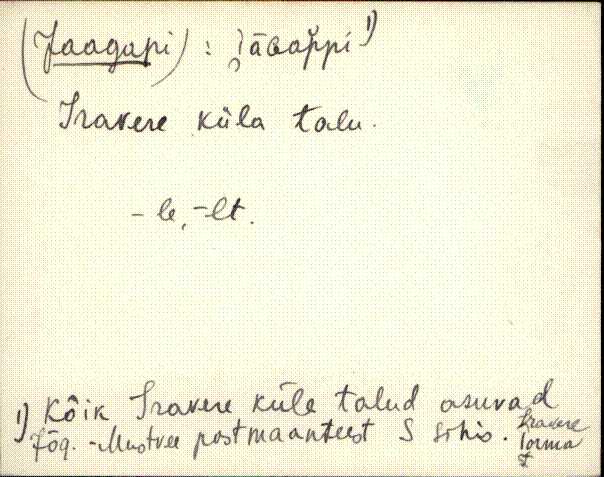 (Jaagupi) : jāɢop̆pi ¹⁾
Iravere küla talu.
-le, -lt.
¹⁾ Kõik Iravere küla talud asuvad
Jõg.-Mustvee postmaanteest S sihis.
Iravere
Torma